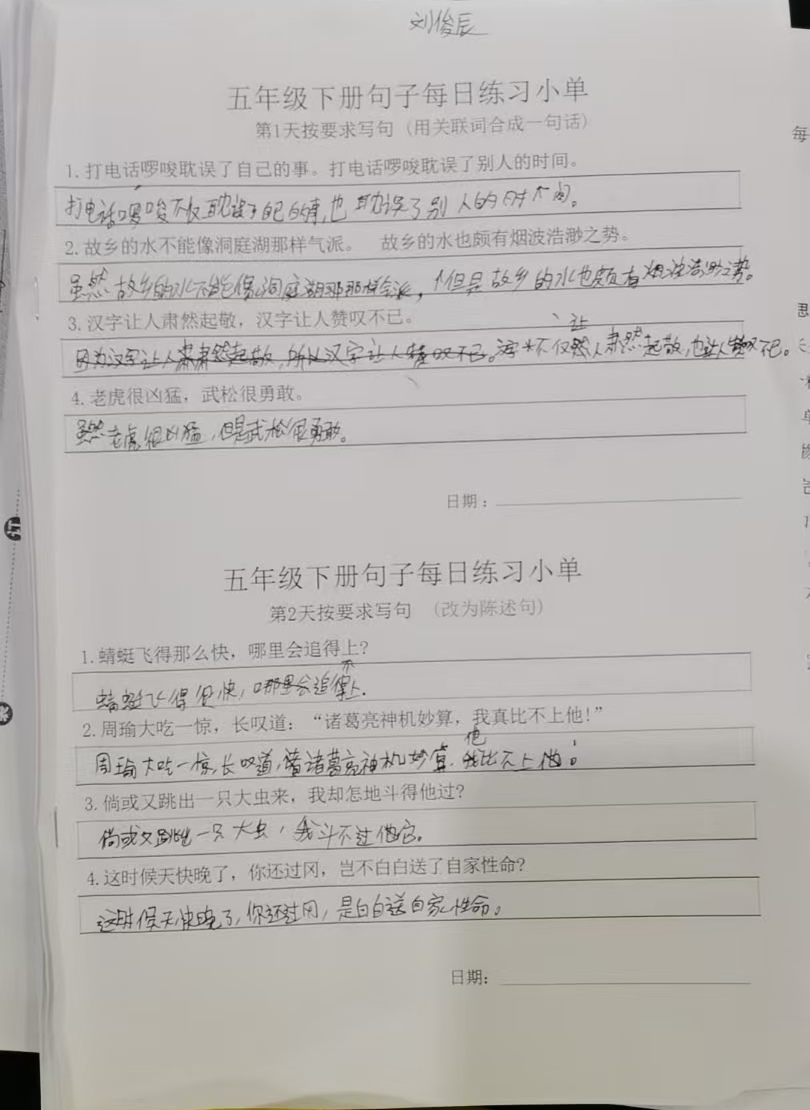 刘俊辰
五年级下册句子每日练习小单
第1天按要求写句（用关联词合成一句话）
1.打电话啰唆耽误了自己的事。打电话啰唆耽误了别人的时间。
打电话啰唆不仅耽误了自己的事，也耽误了别人的时间。
2.故乡的水不能像洞庭湖那样气派。 故乡的水也颇有烟波浩渺之势。
虽然故乡的水不能像洞庭湖那那样气派，但是故乡的水也颇有烟波浩渺之势。
3.汉字让人肃然起敬，汉字让人赞叹不已。
因为汉字让人肃肃然起敬，所以汉字让人赞叹不已。汉字不仅让人肃然起敬，也让人赞叹不已。
4.老虎很凶猛，武松很勇敢。
虽然老虎很凶猛，但是武松很勇敢。
日期：
五年级下册句子每日练习小单
第2天按要求写句 （改为陈述句）
1.蜻蜓飞得那么快，哪里会追得上？
蜻蜓飞得很快，哪里会追不上.
2.周瑜大吃一惊，长叹道：“诸葛亮神机妙算，我真比不上他！”
周瑜大吃一惊，长叹道，诸葛亮神机妙算，他比不上他！
3.倘或又跳出一只大虫来，我却怎地斗得他过？
倘或又跳出一只大虫，我斗不过他。
4.这时候天快晚了，你还过冈，岂不白白送了自家性命？
这时候天快晚了，你还过冈，是白白送自家性命。
日期：